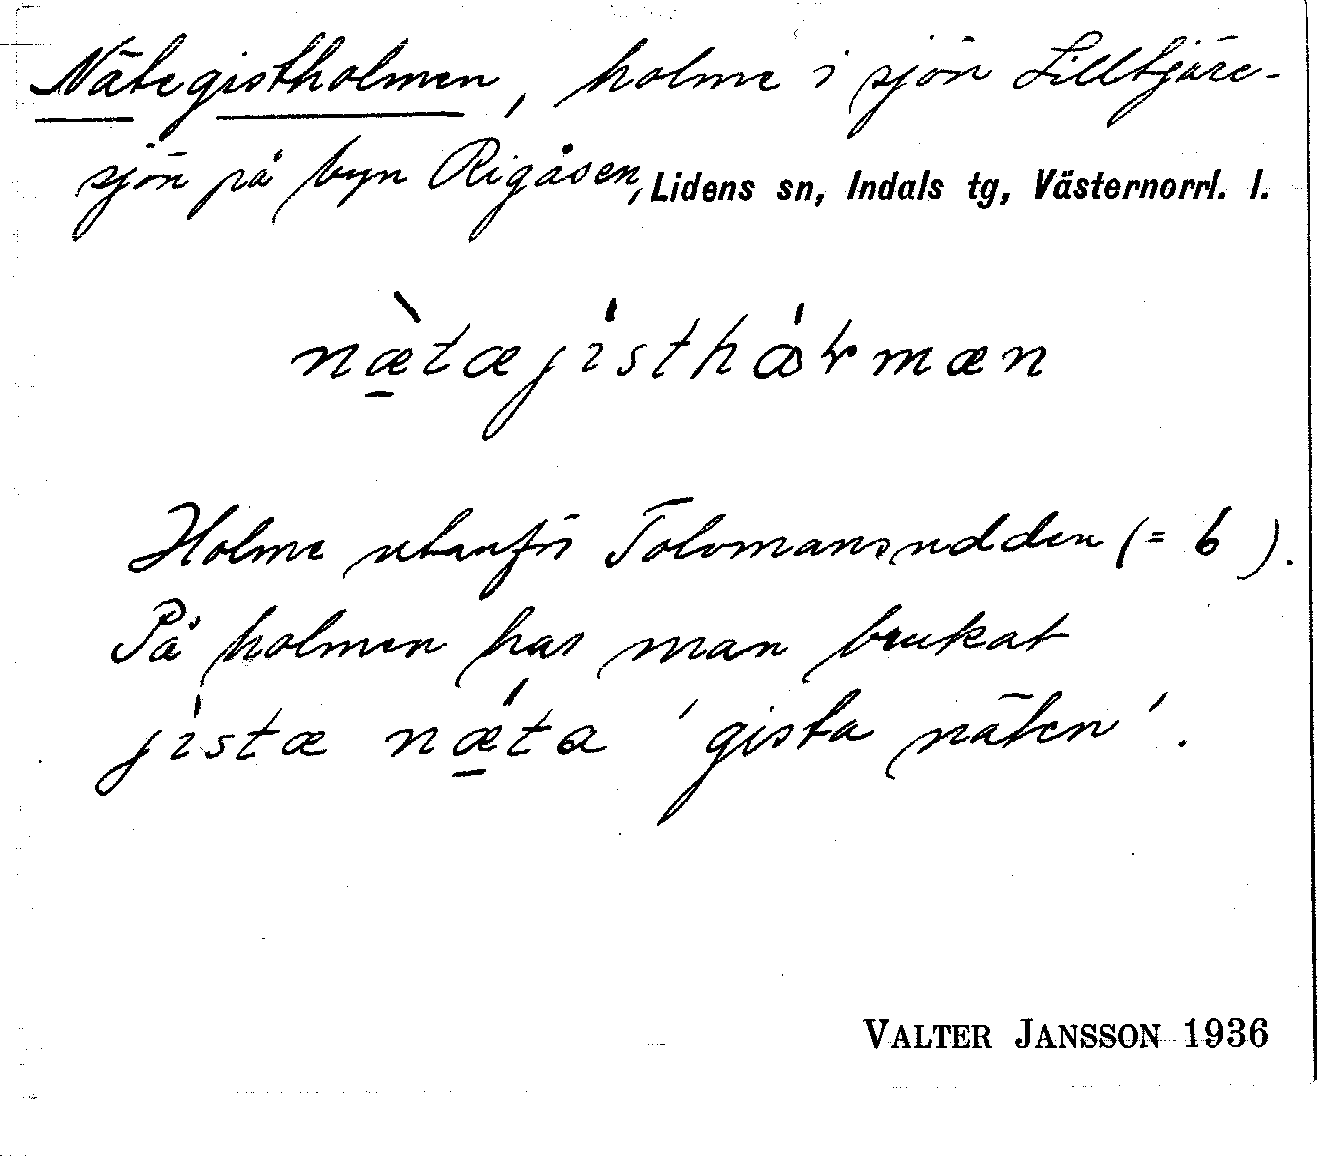 Nätegistholmen, holme i sjön Lilltjäre-
sjön på byn Rigåsen, Lidens sn, Indals tg, Västernorrl. l.
næ̠̀tæjisthåɫmæn
Holme utanför Tolvmansudden (= b).
På holmen har man brukat
jistæ nǽ̠ta 'gista näten'.
VALTER JANSSON 1936